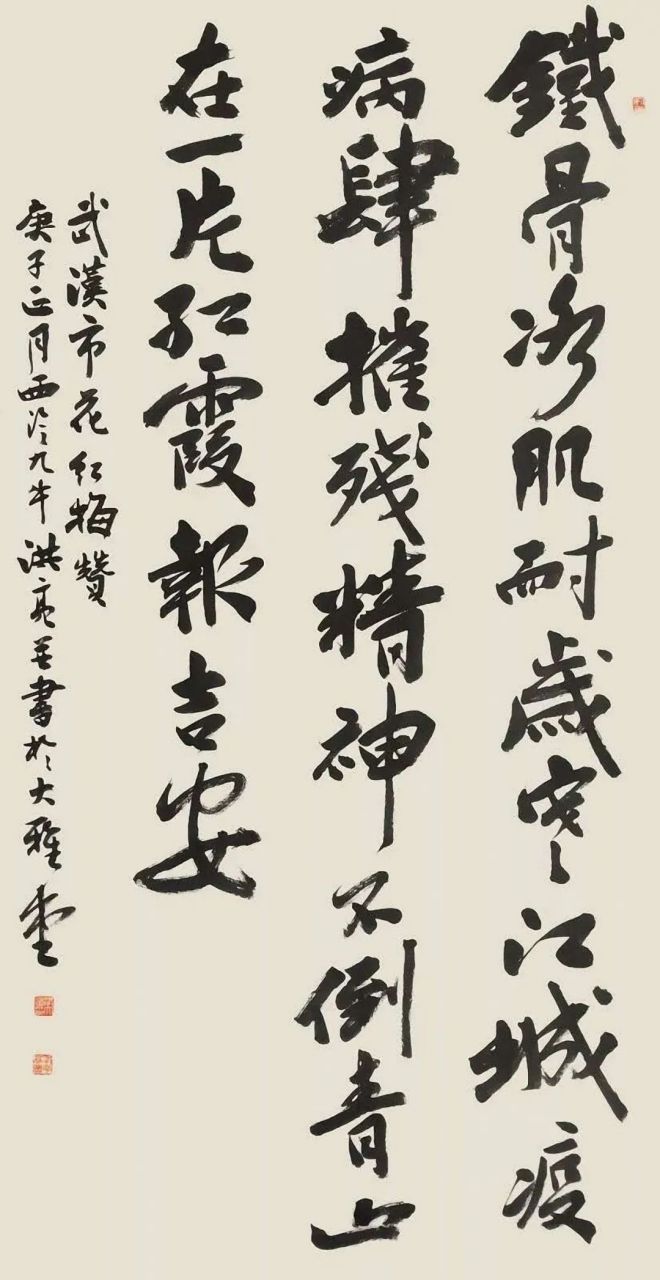 鐵骨冰肌耐歲寒江城疫
病肆摧殘精神不倒青山
在一片紅霞報吉安
武漢市花紅梅贊
庚子正月西泠九牛洪亮並書於大雅堂